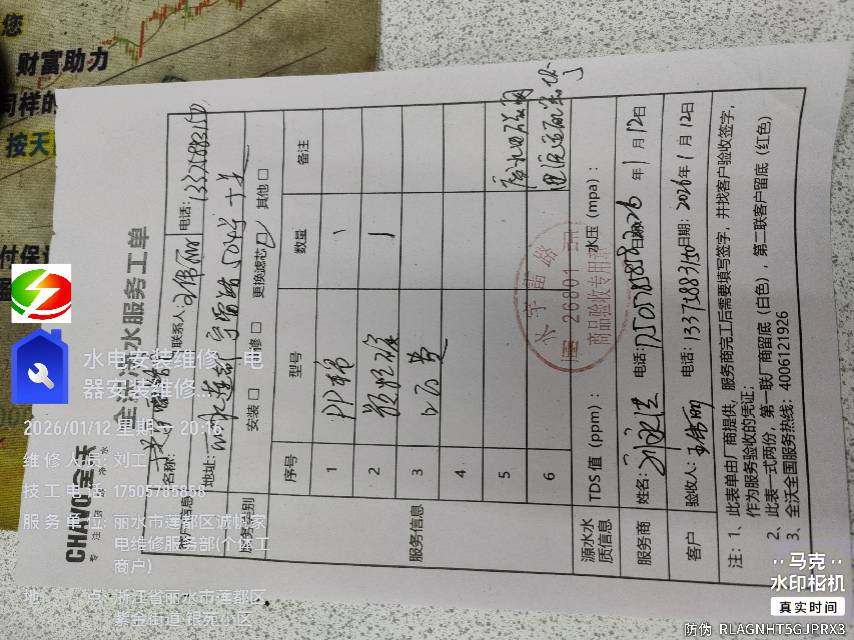 您
财富助力
同样的
按天
付保
CHANGO全沃
专注商用净水
全沃净水服务工单
客户信息
名称:
联系人:王倩丽
电话:13371883150
地址:
丽水莲都宇雷路504号
服务类别
安装□ 维修□ 更换滤芯☑ 其他□
服务信息
序号 型号 数量 备注
1 PP棉 1
2 颗粒碳 1
3
4
5
6
26801
商品验收专用章
源水水质信息
TDS值(ppm):
水压(mpa):
服务商
姓名:
电话:17505785858
日期:2026年1月12日
客户
验收人:王倩丽
电话:13371883150
日期:2026年1月12日
注:1、此表单由厂商提供,服务商完工后需要填写签字,并找客户验收签字,
作为服务验收的凭证;
2、此表一式两份,第一联厂商留底(白色),第二联客户留底(红色)
3、全沃全国服务热线:4006121926
水电安装维修、电
器安装维修...
2026/01/12 星期一 20:16
维修人员:刘工
技工电话:17505785858
服务单位:丽水市莲都区诚帧家
电维修服务部(个体工
商户)
地点:浙江省丽水市莲都区
紫金街道 银苑小区
马克
水印相机
真实时间
防伪 RLAGNHT5GJPRX3